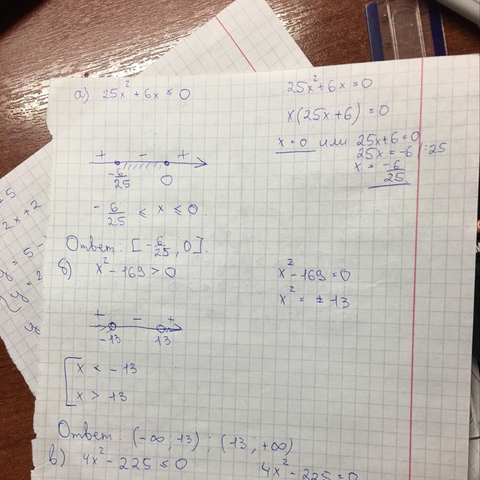 а) 25x² + 6x ≤ 0
25x² + 6x = 0
x(25x + 6) = 0
x = 0 или 25x + 6 = 0
25x = -6 | :25
x = -6/25
+ - +
-6/25 0
- 6/25 ≤ x ≤ 0
Ответ: [-6/25, 0].
б) x² - 169 > 0
x² - 169 = 0
x² = ± 13
+ - +
-13 13
[ x < -13
x > 13
Ответ: (-∞; 13) ; (13, +∞)
в) 4x² - 225 ≤ 0
4x² - 225 = 0
2x + 2